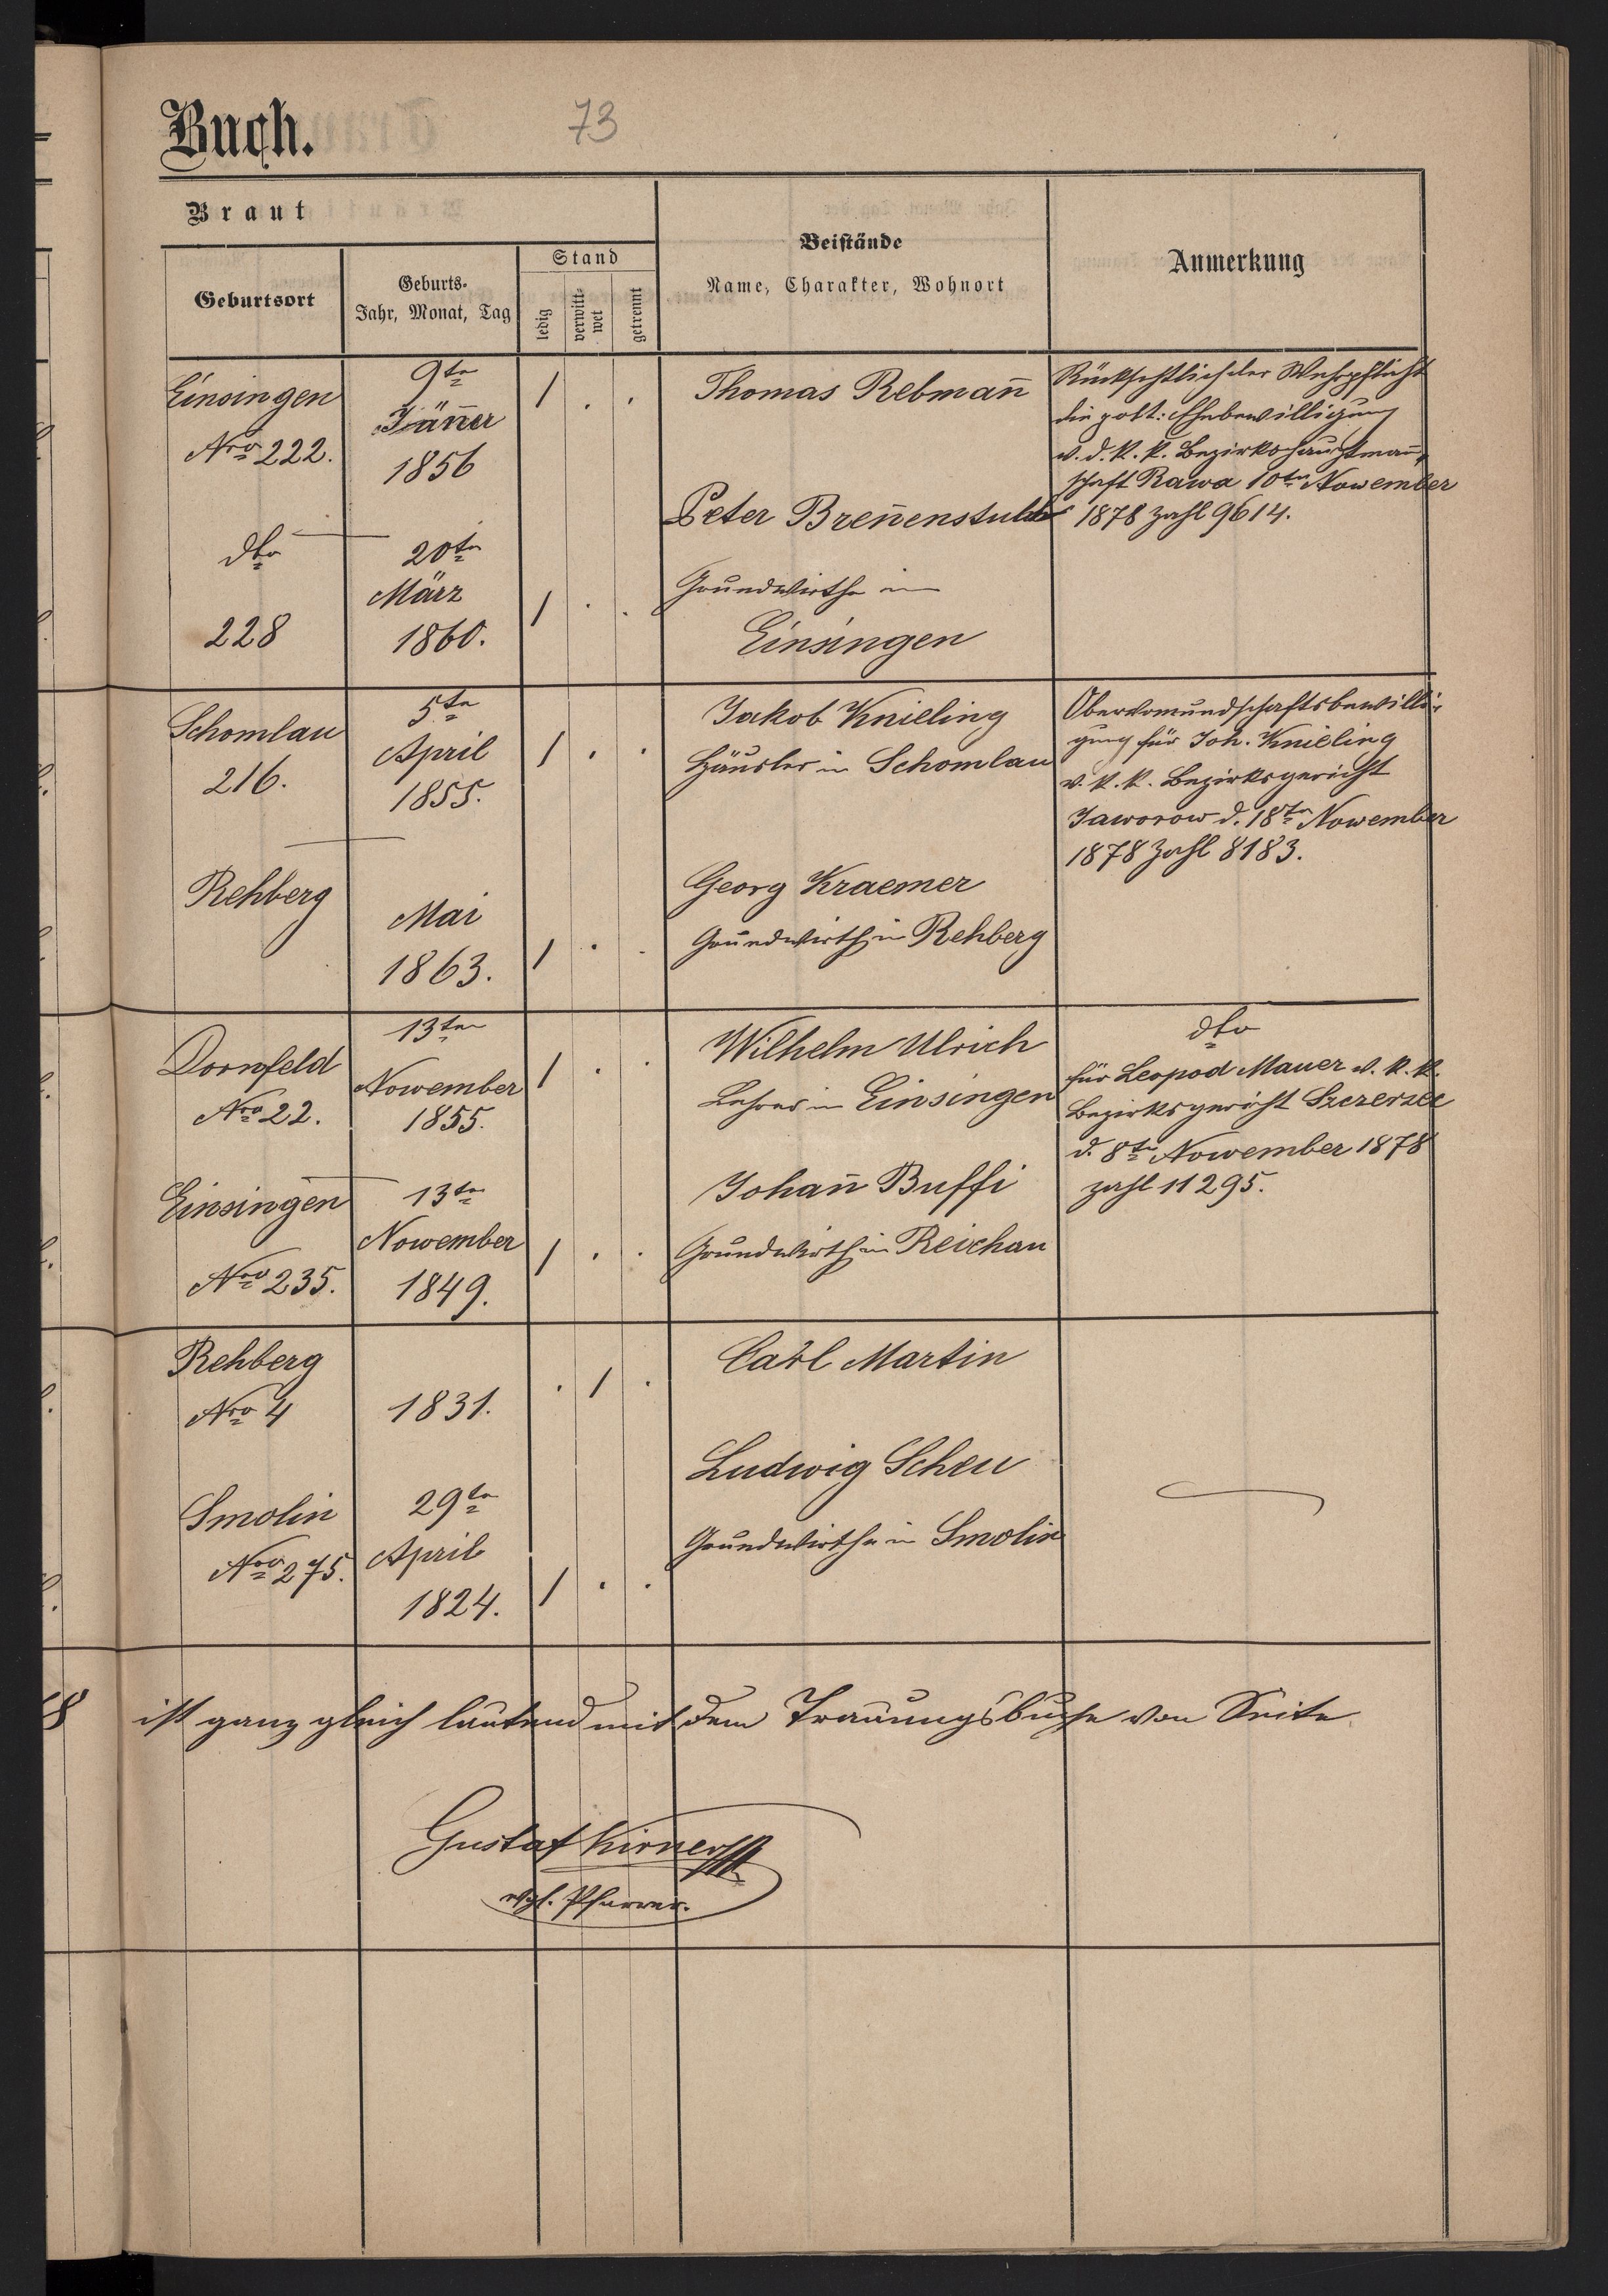 Buch.
73
Braut
Geburtsort
Geburts-
Jahr, Monat, Tag
Stand
ledig
verwitt-
wet
getrennt
Beistände
Name, Charakter, Wohnort
Anmerkung
Einsingen
Nro 222.
9ten
Jäner
1856
1 . .
Thomas Rebman̄
Peter Bren̄enstuhl
Rücksichtlich der Wehrpflicht
die polt: Ehebewilligung
v. d. k. k. Bezirkshauptman̄-
schaft Rawa 10ten Nowember
1878 Zahl 9614.
dto
228
20ten
März
1860.
1 . .
Grundwirthe in
Einsingen
Schomlau
216.
5ten
April
1855.
1 . .
Jakob Knieling
Häusler in Schomlau
Obervormundschaftsbewilli-
gung für Joh. Knieling
v. k. k. Bezirksgericht
Jaworow d. 18ten Nowember
1878 Zahl 8183.
Rehberg
Mai
1863.
1 . .
Georg Kraemer
Grundwirth in Rehberg
Dornfeld
Nro 22.
13ten
Nowember
1855.
1 . .
Wilhelm Ulrich
Lehrer in Einsingen
dto
für Leopod Mauer v. k. k.
Bezirksgericht Szczerzec
d. 8ten Nowember 1878
Zahl 11295.
Einsingen
Nro 235.
13ten
Nowember
1849.
1 . .
Johan̄ Buffi
Grundwirth in Reichau
Rehberg
Nro 4
1831.
. 1 .
Carl Martin
Smolin
Nro 275.
29ten
April
1824.
1 . .
Ludwig Scheu
Grundwirthe in Smolin
8 ist ganz gleich lautend mit dem Trauungsbuche von Seite
Gustaf Kirner
evgl. Pfarrer.